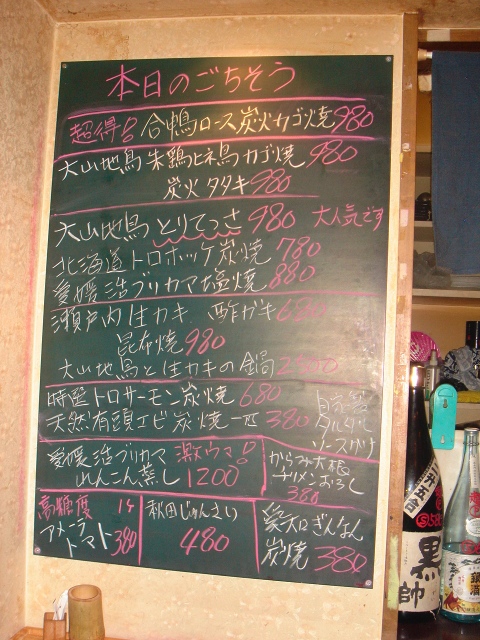 本日のごちそう
超得! 合鴨ロース炭火カゴ焼980
大山地鳥 朱鶏ヒネ鳥カゴ焼980
炭火タタキ980
大山地鳥 とりてっさ 980 大人気です
北海道トロホッケ炭焼780
愛媛活ブリカマ塩焼880
瀬戸内生カキ 酢ガキ680
昆布焼980
大山地鳥と生カキの鍋
特選トロサーモン炭焼680
天然有頭エビ炭焼一匹380
自家製
タルタル
ソースかけ
愛媛活ブリカマ 激ウマ!
れんこん蒸し1200
からみ大根
チリメンおろし
380
高糖度 1ケ
アメーラ
トマト380
秋田じゅんさい
480
愛知ぎんなん
炭焼380
黒帥